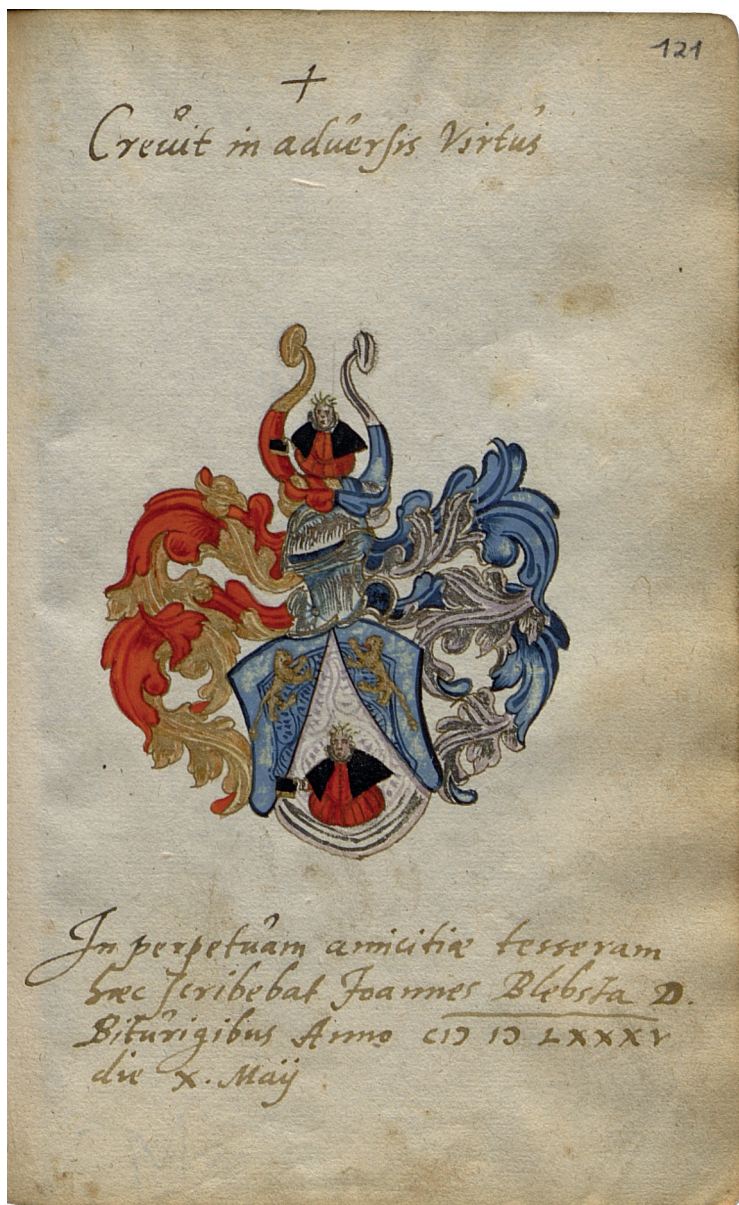 121
+
Crevit in adversis Virtus
In perpetuam amicitiæ tesseram
hæc scribebat Joannes Blebsta D.
Biturigibus Anno CIↃ IↃ LXXXV
die X. Maij